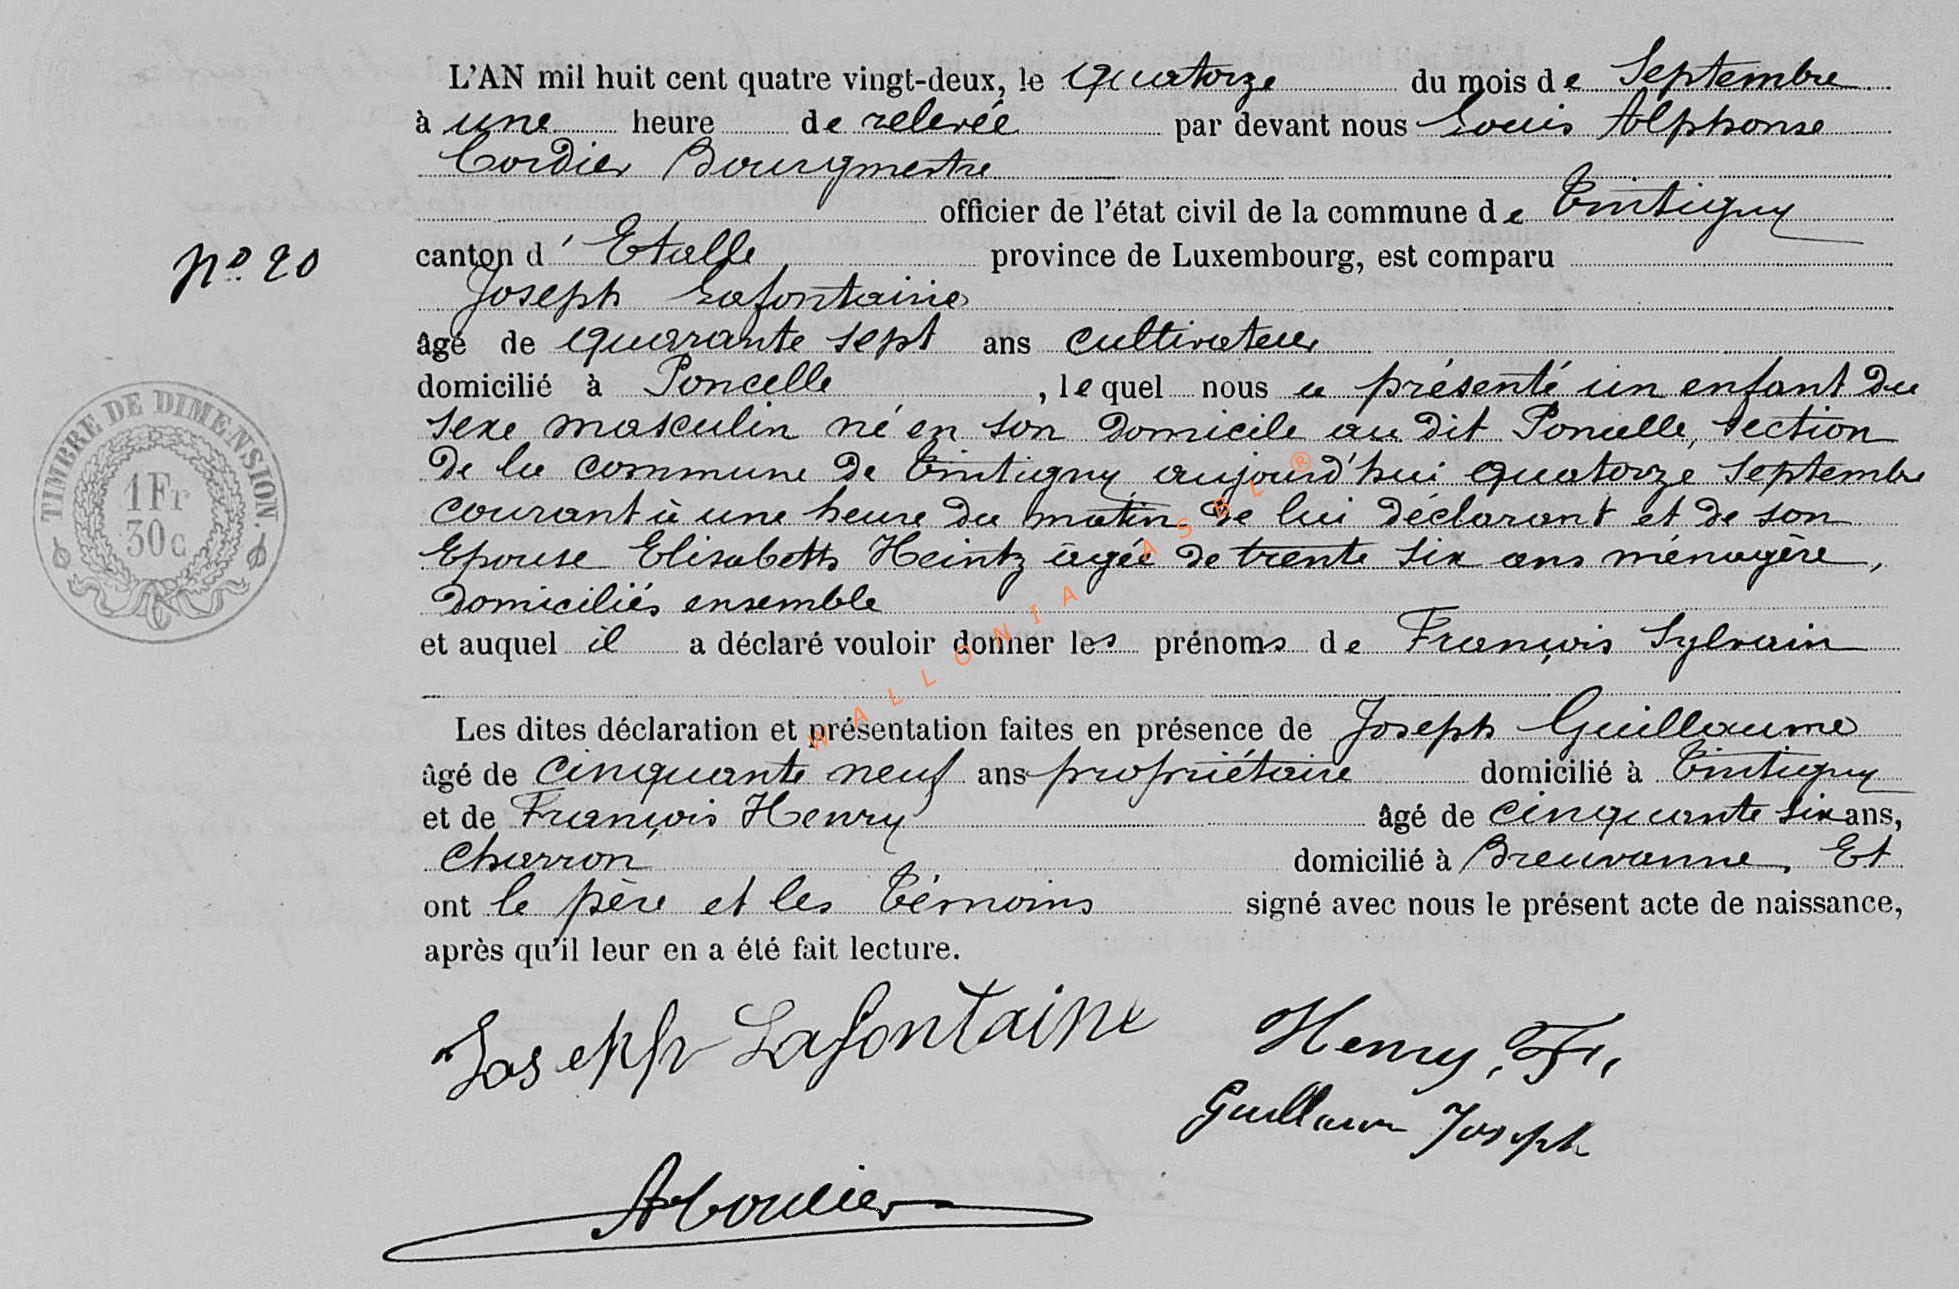 L'AN mil huit cent quatre vingt-deux, le quatorze du mois de Septembre
à une heure de relevée par devant nous Louis Alphonse
Cordier Bourgmestre
officier de l'état civil de la commune de Tintigny
N° 20
canton d'Etalle province de Luxembourg, est comparu
Joseph Lafontaine
âgé de quarante sept ans cultivateur
domicilié à Poncelle, lequel nous a présenté un enfant du
sexe masculin né en son domicile au dit Poncelle, section
de la commune de Tintigny aujourd'hui quatorze septembre
courant à une heure du matin de lui déclarant et de son
Epouse Elisabeth Heintz âgée de trente six ans ménagère,
domiciliés ensemble
et auquel il a déclaré vouloir donner les prénoms de François Sylvain
Les dites déclaration et présentation faites en présence de Joseph Guillaume
âgé de cinquante neuf ans propriétaire domicilié à Tintigny
et de François Henry âgé de cinquante six ans,
Charron domicilié à Breuvanne, Et
ont le père et les témoins signé avec nous le présent acte de naissance,
après qu'il leur en a été fait lecture.
Joseph Lafontaine
Henry, F.
Guillaume Joseph
A Cordier
TIMBRE DE DIMENSION.
1Fr
30c
WALLONIA ASBL ®